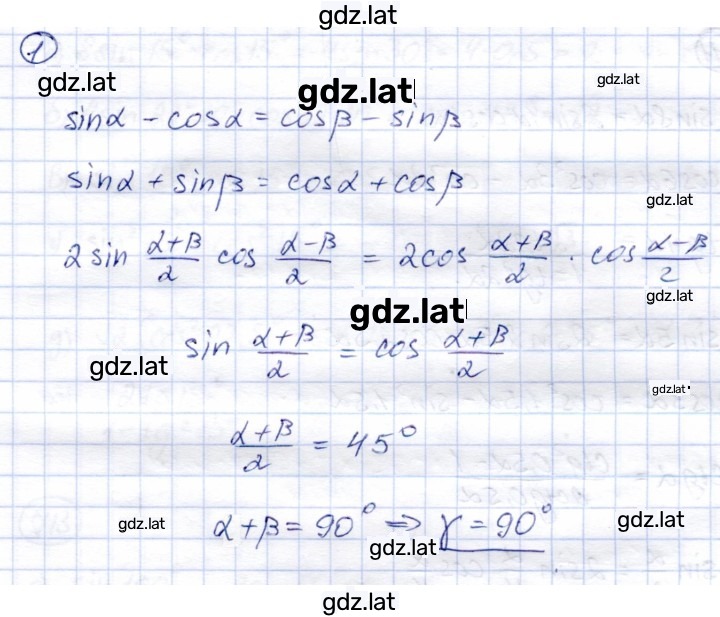 gdz.lat
1
gdz.lat gdz.lat gdz.lat
sinα - cosα = cosβ - sinβ
sinα + sinβ = cosα + cosβ
gdz.lat
2 sin (α+β)/2 cos (α-β)/2 = 2cos (α+β)/2 · cos (α-β)/2
gdz.lat
gdz.lat
sin (α+β)/2 = cos (α+β)/2
gdz.lat
gdz.lat
(α+β)/2 = 45°
α+β = 90° ⇒ γ = 90°
gdz.lat gdz.lat
gdz.lat
gdz.lat